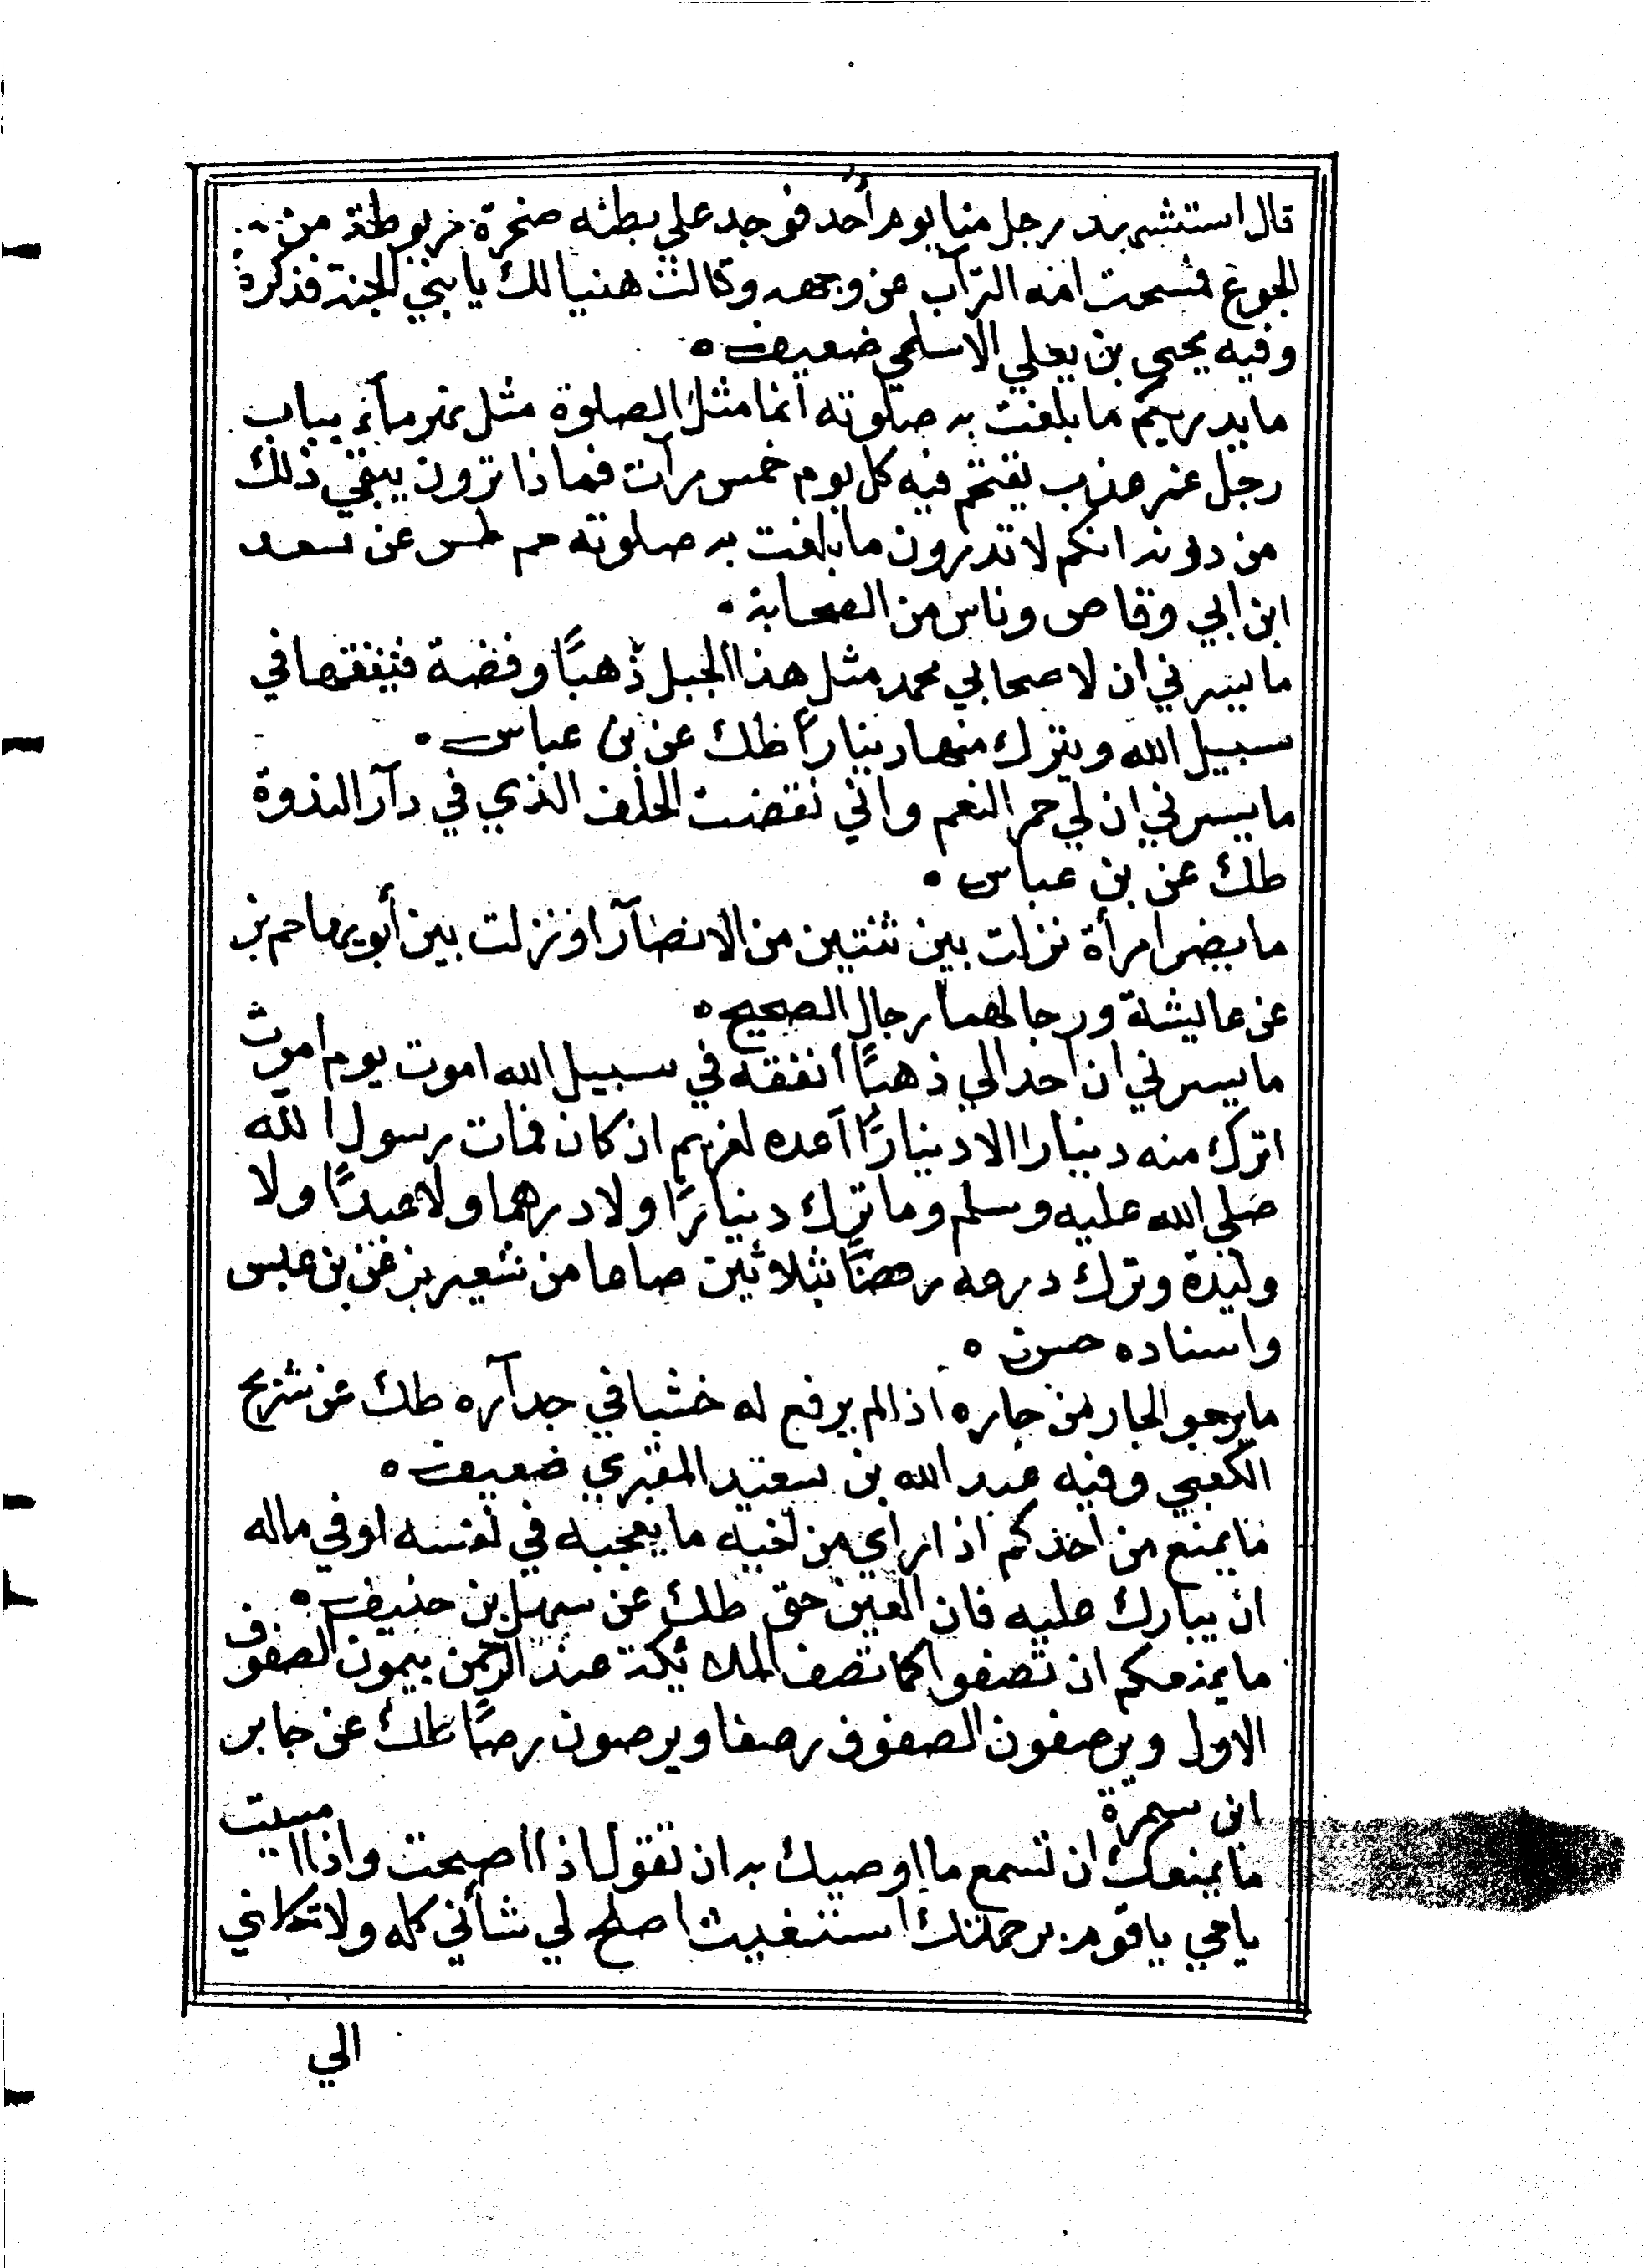 قال استشهد رجل منا يوم أحد فوجد علي بطنه صخرة مربوطة من
الجوع فمسحت امه التراب عن وجهه وقالت هنيا لك يا بني الجنة فذكره
وفيه يحيى بن يعلي الاسلمي ضعيف ه
ما يدريكم ما بلغت به صلوته انما مثل الصلوة مثل نهر مآء بباب
رجل غمر عذب يقتحم فيه كل يوم خمس مرآت فماذا ترون يبقي ذلك
من درنه انكم لا تدرون ما بلغت به صلوته حم طس عن سعد
ابن ابي وقاص وناس من الصحابة .
ما يسرني ان لاصحابي محمد مثل هذا الجبل ذهبًا وفضة فينفقها في
سبيل الله ويترك منها دينارًا طك عن بن عباس .
ما يسرني ان لي حمر النعم واني نقضت الحلف الذي في دآر الندوة
طك عن بن عباس .
ما يضر امرأة نزلت بين ثنتين من الانصآر او نزلت بين أبويها حم بز
عن عايشة ورجالهما رجال الصحيح ه
ما يسرني ان احدا لي ذهبًا أنفقه في سبيل الله اموت يوم اموت
اترك منه دينارا الا دينارًا أعده لغريم ان كان فمات رسول الله
صلي الله عليه وسلم وما ترك دينارًا ولا درهما ولا عبدًا ولا
وليدة وترك درعه رهنًا بثلاثين صاعا من شعير بز عن بن عبس
واسناده حسن ه
ما يرجو الجار من جاره اذا لم يرفع له خشبا في جدآره طك عن شريح
الكعبي وفيه عبد الله بن سعيد المقبري ضعيف ه
ما يمنع من احدكم اذا راي من اخيه ما يعجبه في نفسه او في ماله
ان يبارك عليه فان العين حق طك عن سهل بن حنيف ه
ما يمنعكم ان تصفوا كما تصف الملائكة عند الرحمن يتمون الصفوف
الاول ويرصفون الصفوف رصفا ويرصون رصًا طك عن جابر
ابن سمرة
ما يمنعك ان تسمع ما اوصيك به ان تقول اذا اصبحت واذا امسيت
يا حي يا قيوم برحمتك استغيث اصلح لي شأني كله ولا تكلني
الي